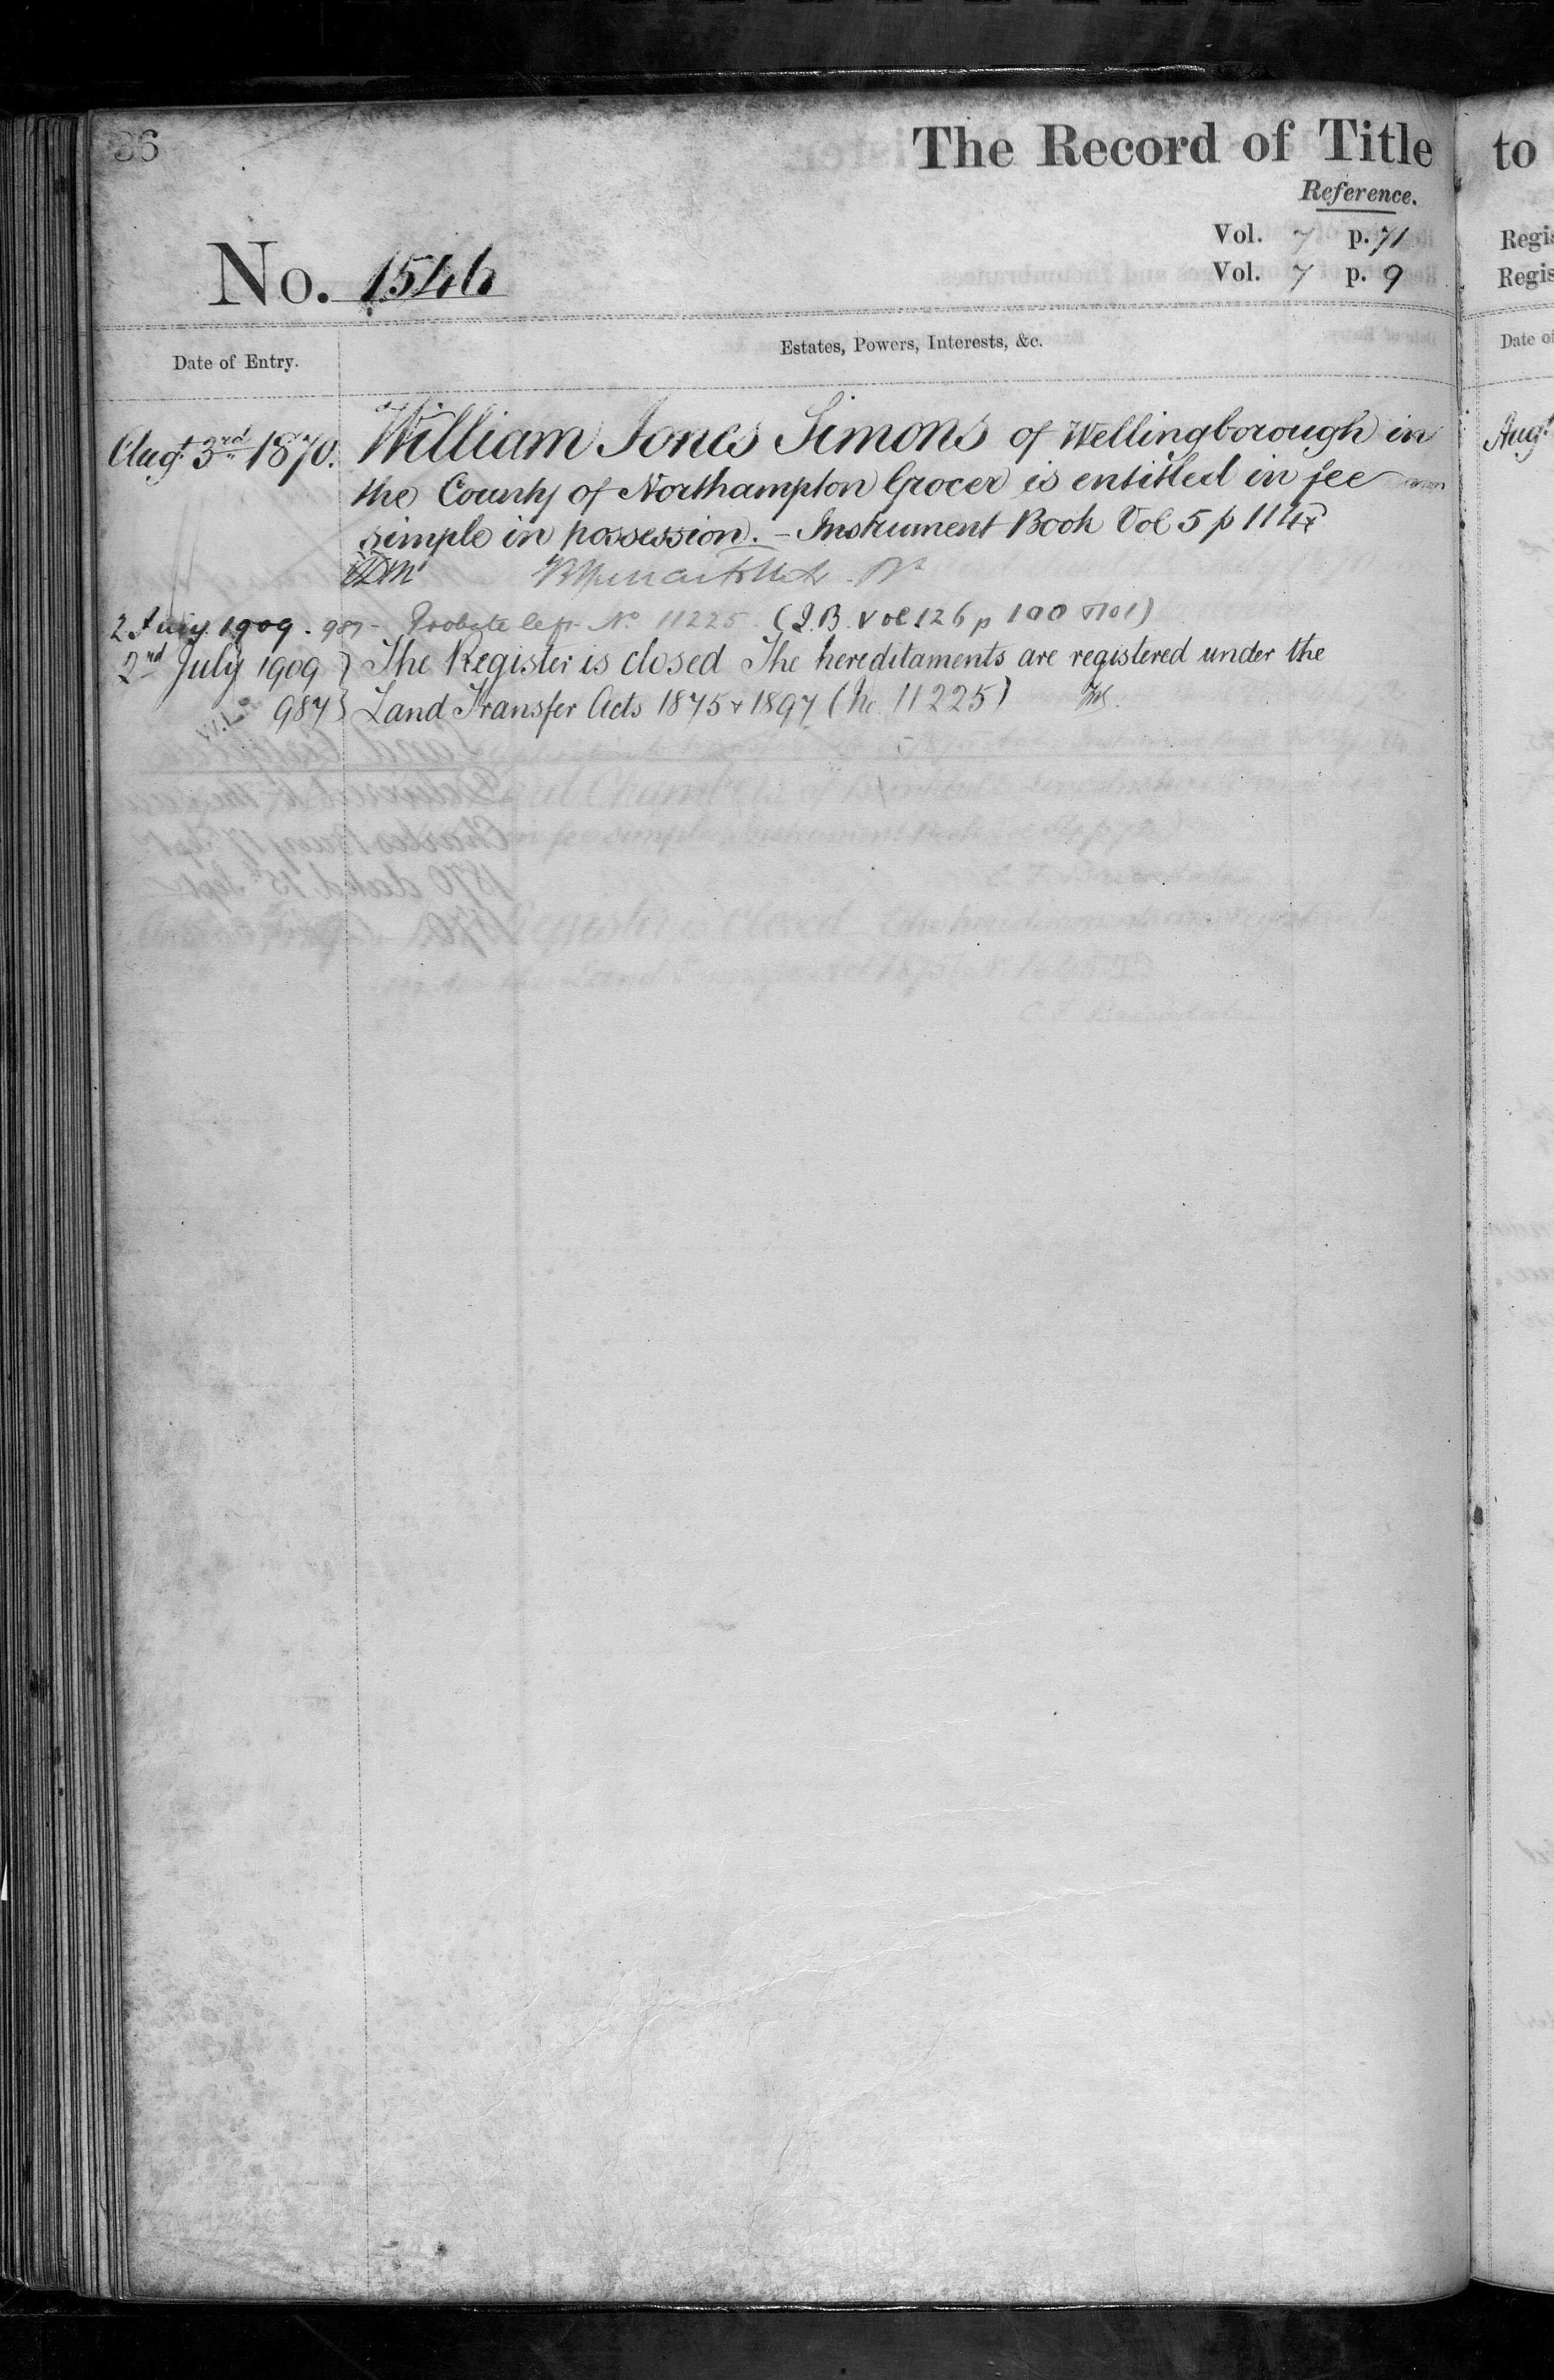 86
The Record of Title
Reference.
Vol. 7 p. 71
Vol. 7 p. 9
No. 1546
Date of Entry.
Estates, Powers, Interests, &c.
Augt 3rd 1870. William Jones Simons of Wellingborough in
the County of Northampton Grocer is entitled in fee
simple in possession. - Instrument Book Vol 5 p 114
2 July 1909. 987 - Probate No 11225 (I.B. Vol 126 p 100 & 101)
2nd July 1909 } The Register is closed The hereditaments are registered under the
987 } Land Transfer Acts 1875 & 1897 (No 11225)
to
Regis
Regis
Date of
Augt